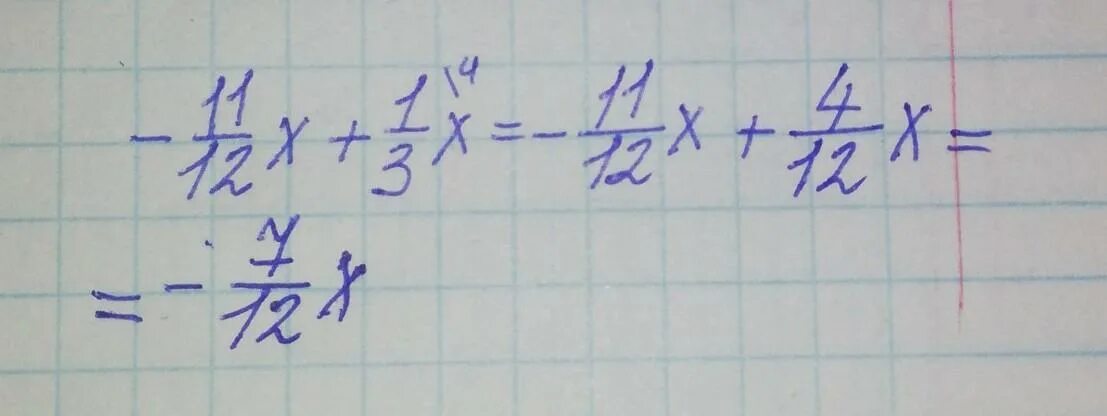 -11/12 x + 1/3 \4 x = -11/12 x + 4/12 x =
= -7/12 x